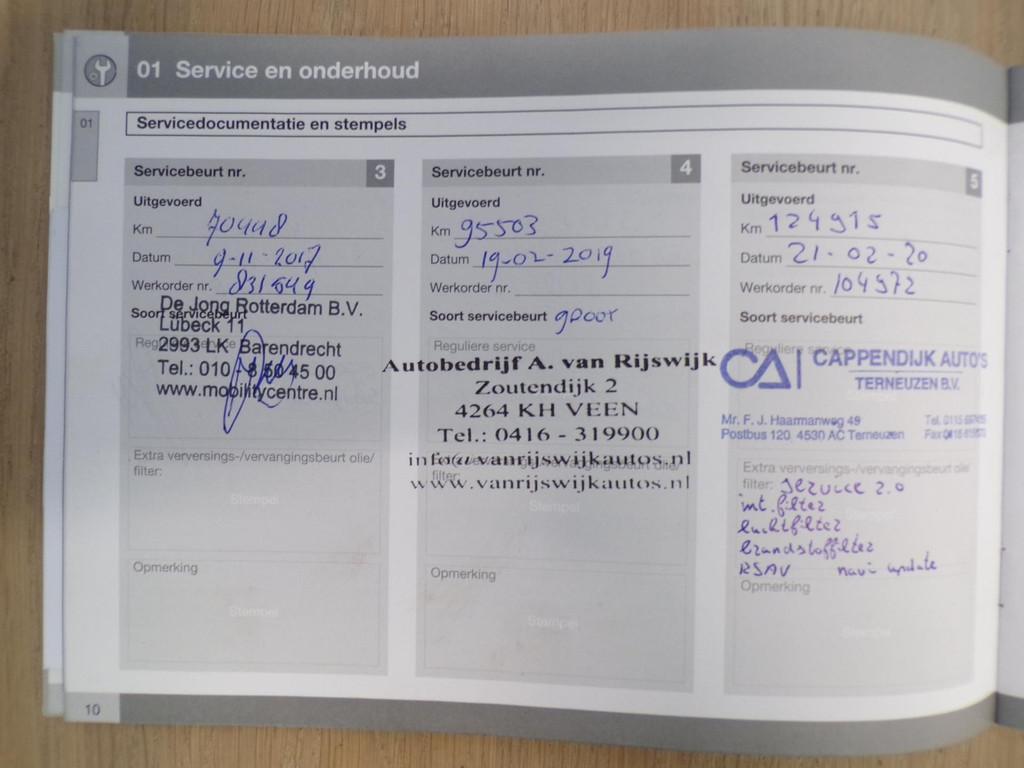 01 Service en onderhoud
01
Servicedocumentatie en stempels
Servicebeurt nr. 3
Uitgevoerd
Km 70448
Datum 9-11-2017
Werkorder nr. 831549
Soort servicebeurt
De Jong Rotterdam B.V.
Lübeck 11
2993 LK Barendrecht
Tel.: 010 - 8 50 45 00
www.mobilitycentre.nl
Extra verversings-/vervangingsbeurt olie/
filter:
Stempel
Opmerking
Stempel
Servicebeurt nr. 4
Uitgevoerd
Km 95503
Datum 19-02-2019
Werkorder nr.
Soort servicebeurt groot
Reguliere service
Autobedrijf A. van Rijswijk
Zoutendijk 2
4264 KH VEEN
Tel.: 0416 - 319900
info@vanrijswijkautos.nl
www.vanrijswijkautos.nl
filter:
Stempel
Opmerking
Stempel
Servicebeurt nr. 5
Uitgevoerd
Km 124915
Datum 21-02-20
Werkorder nr. 104972
Soort servicebeurt
Reguliere service
CA CAPPENDIJK AUTO'S
TERNEUZEN B.V.
Mr. F. J. Haarmanweg 49
Postbus 120, 4530 AC Terneuzen
Extra verversings-/vervangingsbeurt olie/
filter: Service 2.0
int. filter
luchtfilter
brandstoffilter
RSAV navi update
Opmerking
Stempel
10